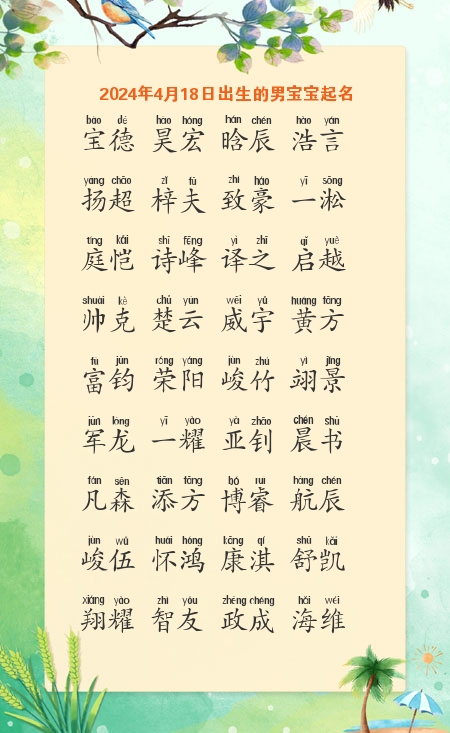 2024年4月18日出生的男宝宝起名
bǎo dé hào hóng hán chén hào yán
宝德 昊宏 晗辰 浩言
yáng chāo zǐ fū zhì háo yī sōng
扬超 梓夫 致豪 一淞
tíng kǎi shī fēng yì zhī qǐ yuè
庭恺 诗峰 译之 启越
shuài kè chǔ yún wēi yǔ huáng fāng
帅克 楚云 威宇 黄方
fù jūn róng yáng jùn zhú yì jǐng
富钧 荣阳 峻竹 翊景
jūn lóng yī yào yà zhāo chén shū
军龙 一耀 亚钊 晨书
fán sēn tiān fāng bó ruì háng chén
凡森 添方 博睿 航辰
jùn wǔ huái hóng kāng qí shū kǎi
峻伍 怀鸿 康淇 舒凯
xiáng yào zhì yǒu zhèng chéng hǎi wéi
翔耀 智友 政成 海维